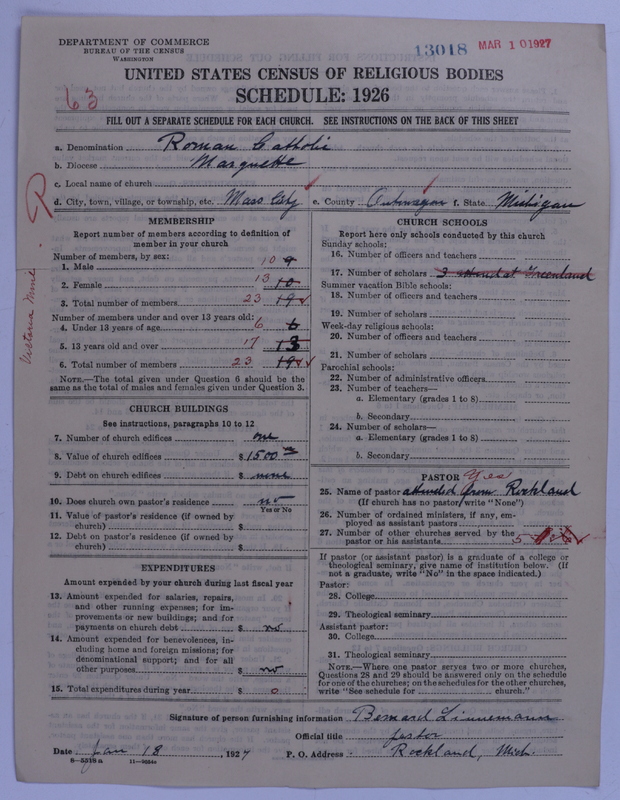 DEPARTMENT OF COMMERCE
BUREAU OF THE CENSUS
WASHINGTON
13018 MAR 10 1927
UNITED STATES CENSUS OF RELIGIOUS BODIES
63
SCHEDULE: 1926
FILL OUT A SEPARATE SCHEDULE FOR EACH CHURCH. SEE INSTRUCTIONS ON THE BACK OF THIS SHEET
a. Denomination Roman Catholic
b. Diocese Marquette
c. Local name of church
d. City, town, village, or township, etc. Mass City e. County Ontonagon f. State Michigan
Victoria Mine
MEMBERSHIP
Report number of members according to definition of
member in your church
Number of members, by sex:
1. Male 10 9
2. Female 13 10
3. Total number of members 23 19
Number of members under and over 13 years old:
4. Under 13 years of age 6 6
5. 13 years old and over 17 13
6. Total number of members 23 19
NOTE.—The total given under Question 6 should be
same as the total of males and females given under Question 3.
CHURCH BUILDINGS
See instructions, paragraphs 10 to 12
7. Number of church edifices one
8. Value of church edifices $ 1500
9. Debt on church edifices $ none
10. Does church own pastor's residence no
Yes or No
11. Value of pastor's residence (if owned by
church) $
12. Debt on pastor's residence (if owned by
church) $
EXPENDITURES
Amount expended by your church during last fiscal year
13. Amount expended for salaries, repairs,
and other running expenses; for im-
provements or new buildings; and for
payments on church debt $ no
14. Amount expended for benevolences, in-
cluding home and foreign missions; for
denominational support; and for all
other purposes $ no
15. Total expenditures during year $ 0
CHURCH SCHOOLS
Report here only schools conducted by this church
Sunday schools:
16. Number of officers and teachers
17. Number of scholars 3 attend at Greenland
Summer vacation Bible schools:
18. Number of officers and teachers
19. Number of scholars
Week-day religious schools:
20. Number of officers and teachers
21. Number of scholars
Parochial schools:
22. Number of administrative officers
23. Number of teachers—
a. Elementary (grades 1 to 8)
b. Secondary
24. Number of scholars—
a. Elementary (grades 1 to 8)
b. Secondary
PASTOR Yes
25. Name of pastor attended from Rockland
(If church has no pastor, write "None")
26. Number of ordained ministers, if any, em-
ployed as assistant pastors
27. Number of other churches served by the
pastor or his assistants 5
If pastor (or assistant pastor) is a graduate of a college or
theological seminary, give name of institution below. (If
not a graduate, write "No" in the space indicated.)
Pastor:
28. College
29. Theological seminary
Assistant pastor:
30. College
31. Theological seminary
NOTE.—Where one pastor serves two or more churches,
Questions 28 and 29 should be answered only on the schedule
for one of the churches; on the schedules for the other churches,
write "See schedule for church."
Signature of person furnishing information Bernard Linnemann
Official title pastor
Date Jan 18, 1927 P. O. Address Rockland, Mich.
8—5319a 11—9084a